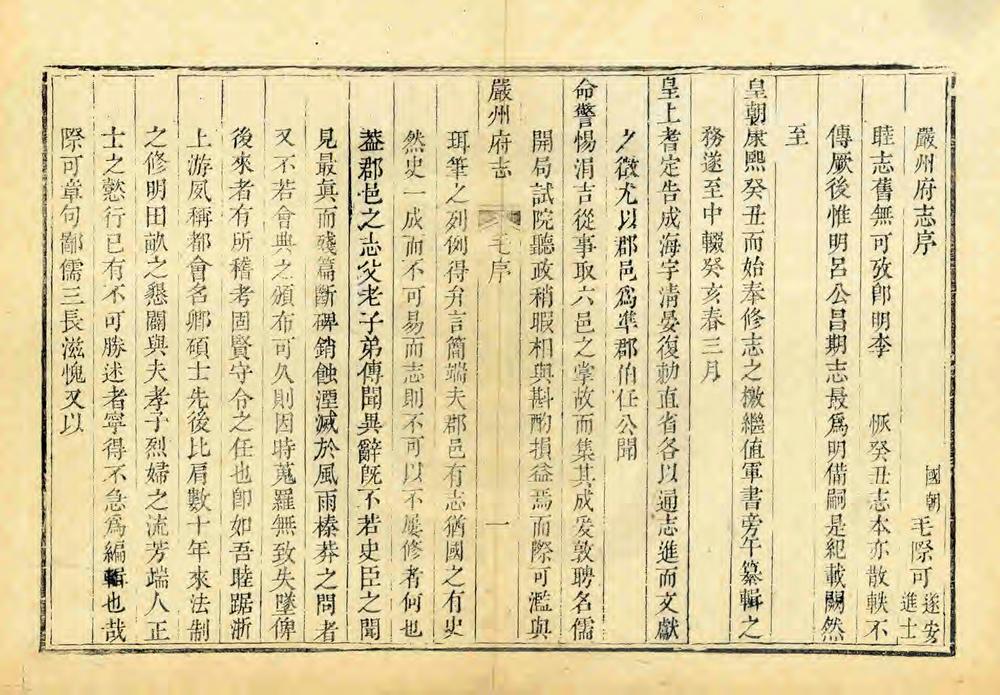 嚴州府志序
國朝毛際可遂安進士
睦志舊無可攷卽明李 恹癸丑志本亦散軼不
傳厥後惟明呂公昌期志最爲明備嗣是紀載闕然
至
皇朝康熙癸丑而始奉修志之檄繼值軍書旁午纂輯之
務遂至中輟癸亥春三月
皇上耆定告成海宇淸晏復勅直省各以通志進而文獻
之徵尤以郡邑爲凖郡伯任公聞
命警惕涓吉從事取六邑之掌故而集其成爰敦聘名儒
開局試院聽政稍暇相與斟酌損益焉而際可濫與
嚴州府志 毛序 一
珥筆之列例得弁言簡端夫郡邑有志猶國之有史
然史一成而不可易而志則不可以不屢修者何也
葢郡邑之志父老子弟傳聞異辭旣不若史臣之聞
見最眞而殘篇斷碑銷蝕湮滅於風雨榛莽之間者
又不若會典之頒布可久則因時蒐羅無致失墜俾
後來者有所稽考固賢守令之任也卽如吾睦踞浙
上游夙稱都會名卿碩士先後比肩數十年來法制
之修明田畝之懇闢與夫孝子烈婦之流芳端人正
士之懿行已有不可勝述者寧得不急爲編輯也哉
際可章句鄙儒三長滋愧又以